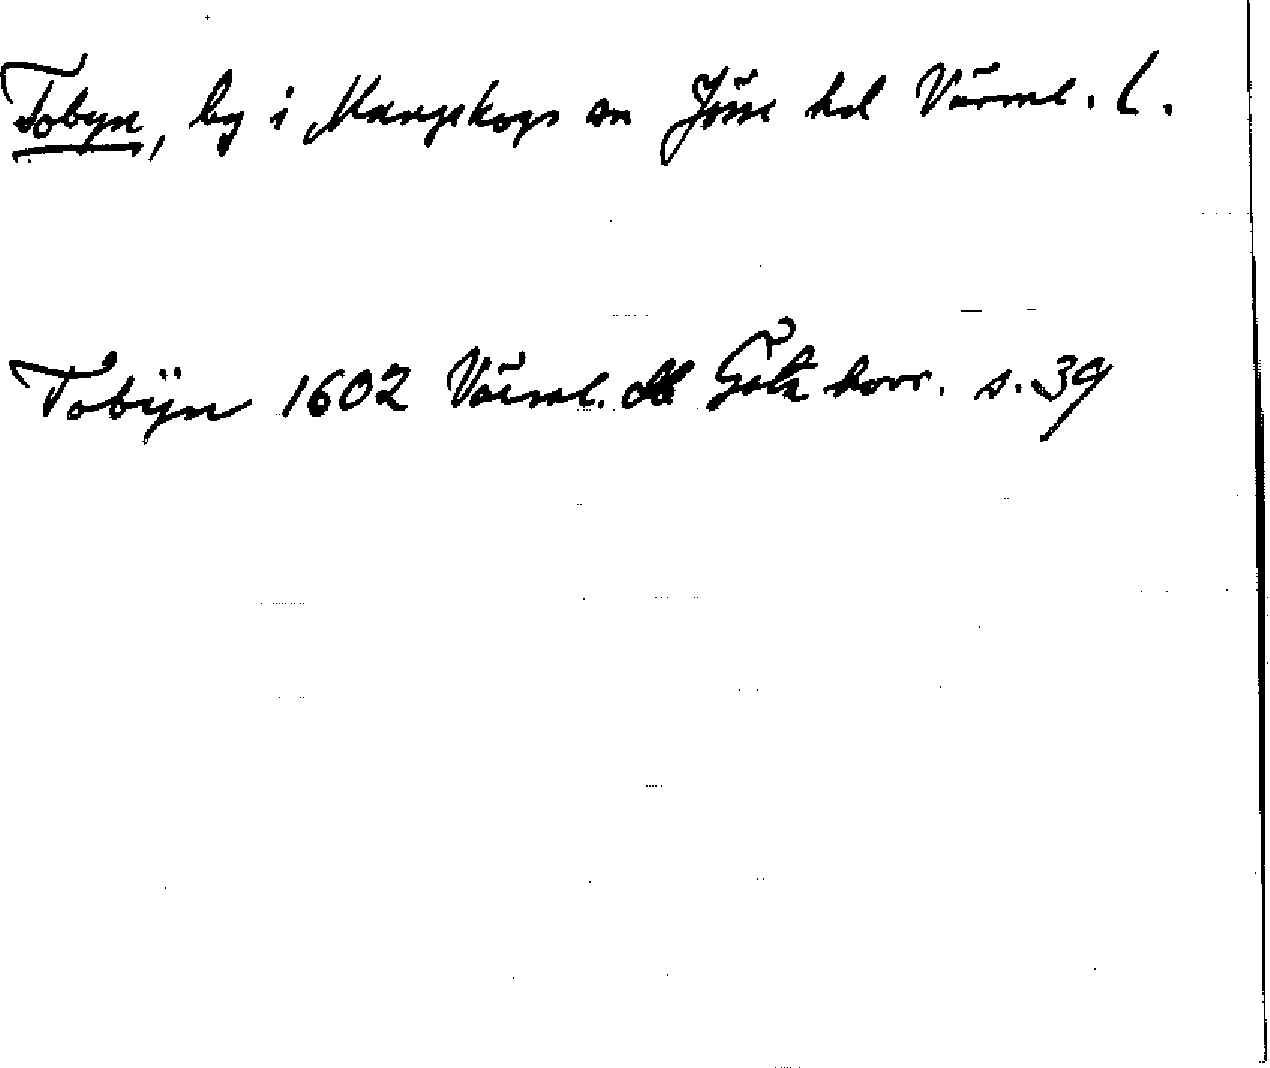 Tobyn, by i Mangskogs sn Jösse hd Värml. l.
Tobÿn 1602 Värml. Götz korr. s. 39